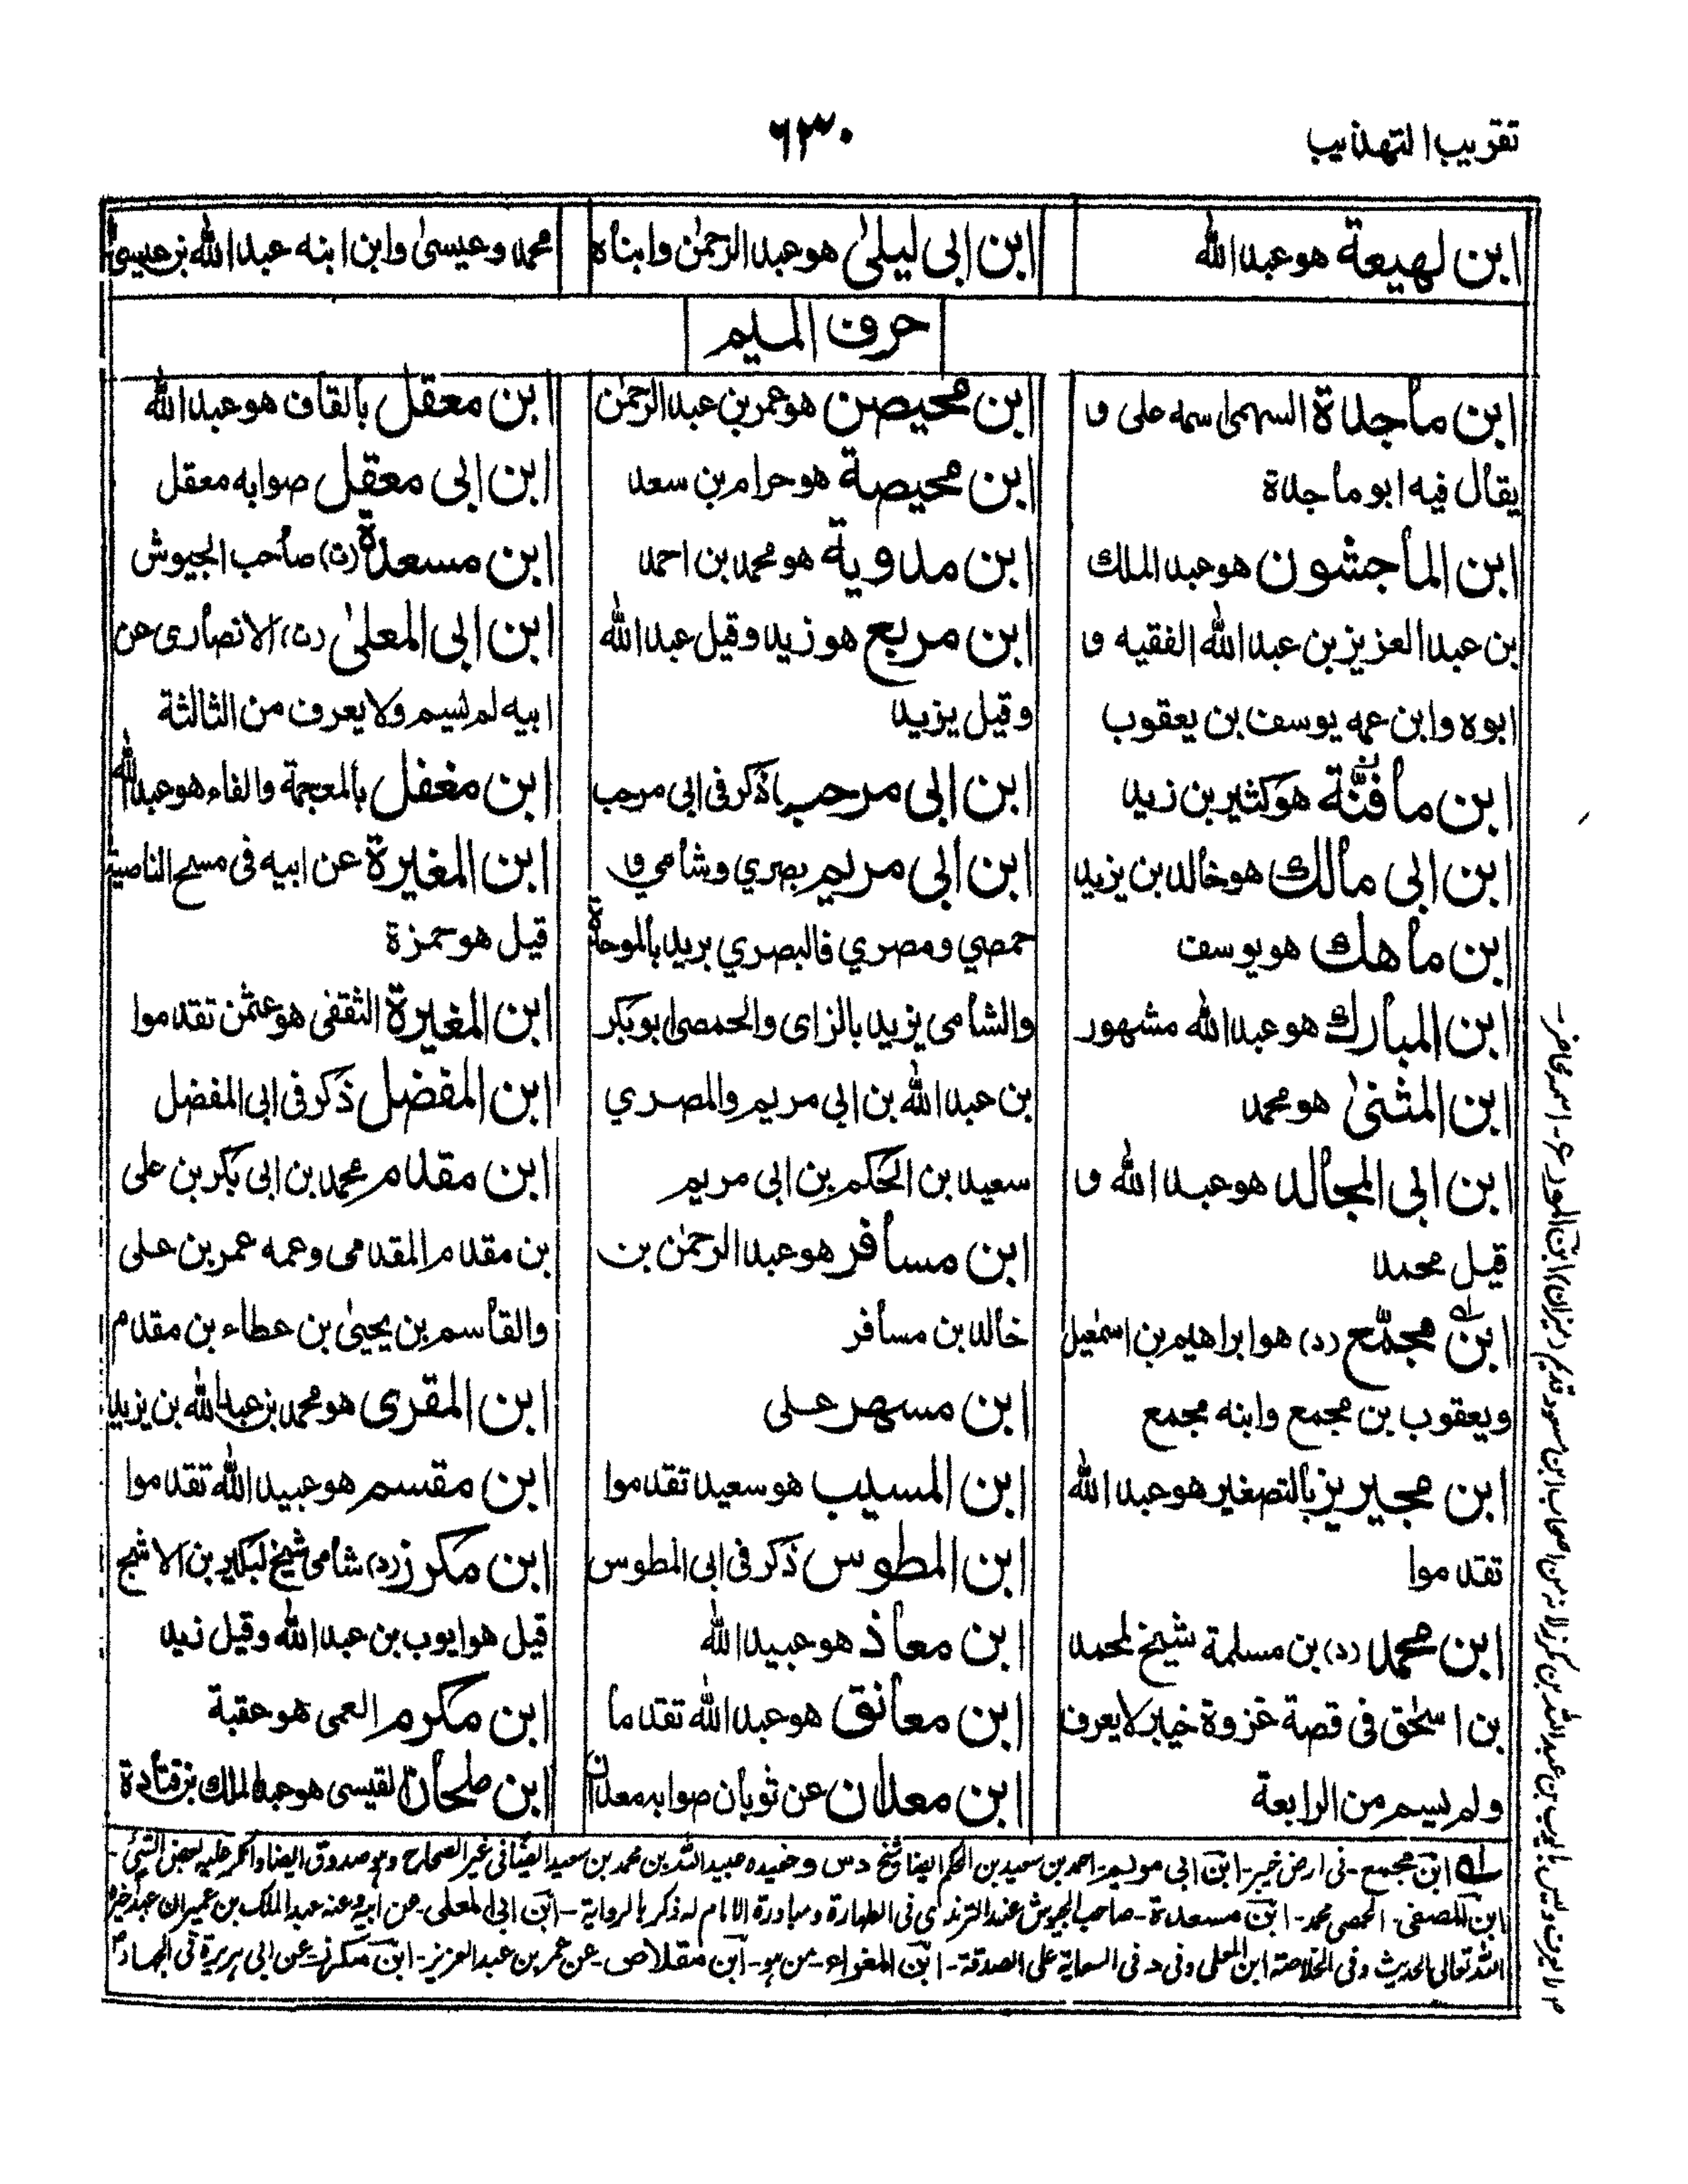 تقريب التهذيب
٦٣٠
ابن لهيعة هو عبد الله
ابن ابى ليلىٰ هو عبد الرحمٰن وابناه
محمد وعيسىٰ وابن ابنه عبد الله بن عيسىٰ
حرف الميم
ابن ماجدة السهمى اسمه على و
يقال فيه ابو ماجدة
ابن الماجشون هو عبد الملك
بن عبد العزيز بن عبد الله الفقيه و
ابوه وابن عمه يوسف بن يعقوب
ابن مافنَّة هو كثير بن زيد
ابن ابى مالك هو خالد بن يزيد
ابن ماهك هو يوسف
ابن المبارك هو عبد الله مشهور
ابن المثنىٰ هو محمد
ابن ابى المجالد هو عبد الله و
قيل محمد
ابن مجمّع (د) هو ابراهيم بن اسمٰعيل
ويعقوب بن مجمع وابنه مجمع
ابن محيريز بالتصغير هو عبد الله
تقدموا
ابن محمد (د) بن مسلمة شيخ لمحمد
بن اسحٰق فى قصة غزوة خيبر لا يعرف
ولم يسم من الرابعة
ابن محيصن هو عمر بن عبد الرحمٰن
ابن محيصة هو حرام بن سعد
ابن مدوية هو محمد بن احمد
ابن مربع هو زيد وقيل عبد الله
وقيل يزيد
ابن ابى مرحب ذكر فى ابى مرحب
ابن ابى مريم بصري وشامي و
حمصي ومصري فالبصري بريد بالموحدة
والشامى يزيد بالزاى والحمصى ابو بكر
بن عبد الله بن ابى مريم والمصري
سعيد بن الحكم بن ابى مريم
ابن مسافر هو عبد الرحمٰن بن
خالد بن مسافر
ابن مسهر على
ابن المسيب هو سعيد تقدموا
ابن المطوس ذكر فى ابى المطوس
ابن معاذ هو عبيد الله
ابن معانق هو عبد الله تقدما
ابن معدان عن ثوبان صوابه معدان
ابن معقل بالقاف هو عبد الله
ابن ابى معقل صوابه معقل
ابن مسعدة (ت) صاحب الجيوش
ابن ابى المعلىٰ (ت) الانصارى عن
ابيه لم يسم ولا يعرف من الثالثة
ابن مغفل بالمعجمة والفاء هو عبد الله
ابن المغيرة عن ابيه فى مسح الناصية
قيل هو حمزة
ابن المغيرة الثقفى هو عثمٰن تقدموا
ابن المفضل ذكر فى ابى المفضل
ابن مقدم محمد بن ابى بكر بن على
بن مقدم المقدمى وعمه عمر بن على
والقاسم بن يحيىٰ بن عطاء بن مقدم
ابن المقرى هو محمد بن عبد الله بن يزيد
ابن مقسم هو عبيد الله تقدموا
ابن مكرز (د) شامى شيخ لبكير بن الاشج
قيل هو ايوب بن عبد الله وقيل زيد
ابن مكرم العمى هو عقبة
ابن ملحان القيسى هو عبد الملك بن قتادة
ابن مجمع - فى ارض خيبر - ابن ابى مريم - احمد بن سعيد بن الحكم ايضا شيخ د س و حفيده عبيد الله بن محمد بن سعيد ايضا فى غير الصحاح وهو صدوق ايضا
ابن المصفى - الحمصى محمد - ابن مسعدة - صاحب الجيوش عند الترمذى فى الطهارة ومبادرة الامام له ذكر بالرواية - ابن ابى المعلى - عن ابيه وعنه عبد الملك بن عمير
الله تعالى الحديث وفى الخلاصة ابن المعلى وفى د فى السعاية على الصدقة - ابن المغراء - من هو - ابن مقلاص - عن عمر بن عبد العزيز - ابن مكرز - عن ابى هريرة فى الجهاد